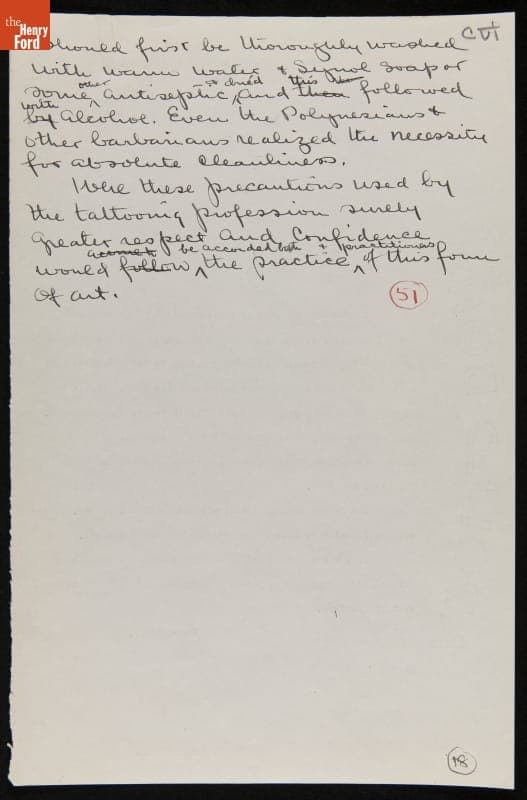 the
Henry
Ford
CVI
should first be thoroughly washed
with warm water & Synol soap or
some other Antiseptic, & dried And this followed
with Alcohol. Even the Polynesians &
other barbarians realized the necessity
for absolute cleanliness.
Were these precautions used by
the tattooing profession surely
greater respect and Confidence
would be accorded both the practice & practitioners of this form
of art.
51
18